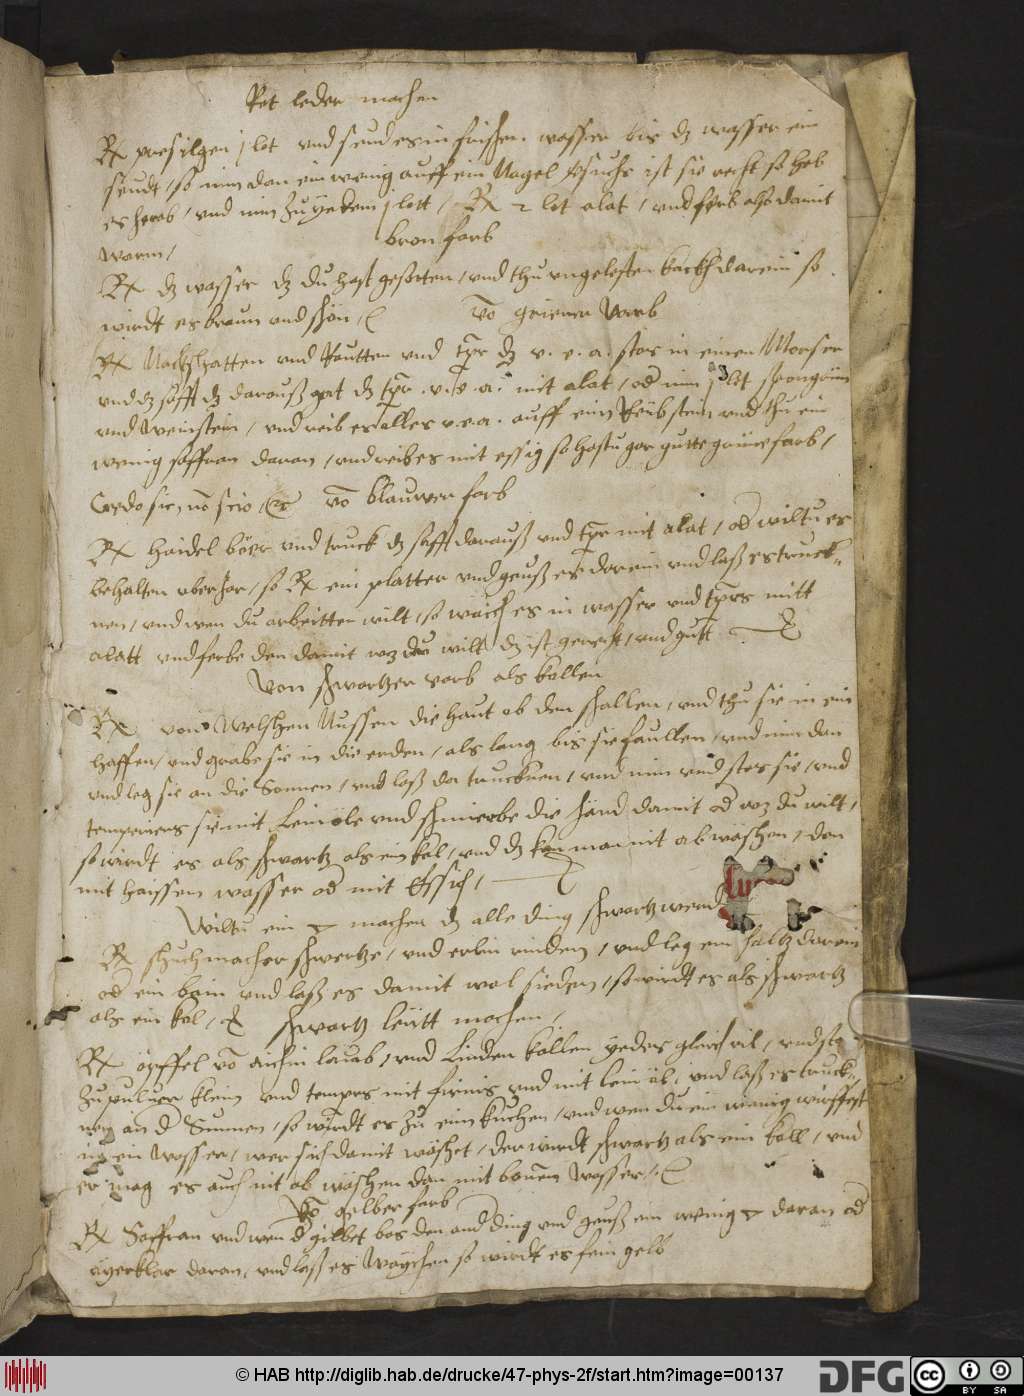 Rot leder machen
Rx presilgen j lot vnd seud es in frischen wasser bis dz wasser ein
seudt, so nim dan ein wenig auff ein Nagel versuchs ist sie recht so heb
es herab, vnd nim zu yedem j lott, Rx 2 lot alat, vnd ferb also damit
warm,
bron farb
Rx dz wasser dz du hast gesotten, vnd thu vngelesten kalch darein so
wirdt es braun vnd schön,
Von griener Varb
Rx Nachtschatten vnd Rautten vnd tpr dz v. e. a. stos in einen Morser
vnd dz safft dz darauß gat dz tpr. v. e. a. mit alat, od nim j lot spongrün
vnd Weinstein, vnd reib es alles v. e. a. auff eim Reibstein vnd thu ein
wenig saffran daran, vnd reib es mit essig so hastu gar gutte grüne farb,
Credo sic, no scio, etc
vo blauwer farb
Rx Haidel böer vnd truck dz safft darauß vnd tpr mit alat, od wiltu es
behalten vber Jar, so Rx ein platter vnd geuß es darein vnd laß es truck=
nen, vnd wen du arbeitten wilt, so waich es in wasser vnd tprs mitt
alatt vnd ferbe den damit wz du wilt dz ist gerecht, vnd gutt
Von schwartzer varb als kollen
Rx von Welschen Nussen die haut ob den schallen, vnd thu sie in ein
haffen, vnd grabe sie in die erden, als lang bis sie faullen, vnd nim dan
vnd leg sie an die Sonnen, vnd laß da trucknen, vnd nim vnd stos sie, vnd
temperiers sie mit Leinöle vnd schmierbe die händ damit od wz du wilt,
so wirdt es als schwartz als ein kol, vnd dz kan man nit ab wäschen, dan
mit haissem wasser od mit Essich,
Wiltu ein machen dz alle ding schwartz werd
Rx schuchmacher schwertze, vnd erlin rinden, vnd leg ein holtz darein
od ein bain vnd laß es damit wol sieden, so wirdt es als schwartz
als ein kol,
schwartz leütt machen,
Rx öpffel vo aichin laub, vnd Linden kollen yedes gleich vil, vnd stos
zu puluer klein vnd tempers mit firnis vnd mit lein öl, vnd laß es truck=
nen an d Sunnen, so wirdt es zu eim kuchen, vnd wen du ein wenig wirffest
in ein Wasser, wer sich damit wäschet, der wirdt schwartz als ein koll, vnd
er mag es auch nit ab wäschen dan mit Wasser,
Vo gelber farb
Rx Saffran vnd wen d gilbet bas den and ding vnd geuß ein wenig daran od
ayerklar daran, vnd laß es Waychen so wirdt es fein gelb
© HAB http://diglib.hab.de/drucke/47-phys-2f/start.htm?image=00137
DFG
cc
BY SA